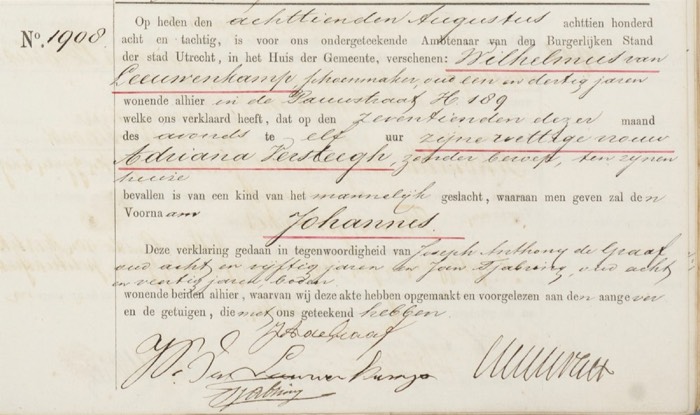 No. 1908.
Op heden den achttienden Augustus achttien honderd
acht en tachtig, is voor ons ondergeteekende Ambtenaar van den Burgerlijken Stand
der stad Utrecht, in het Huis der Gemeente, verschenen: Wilhelmus van
Leeuwenkamp, schoenmaker, oud een en dertig jaren
wonende alhier in de Pauwstraat H. 189
welke ons verklaard heeft, dat op den zeventienden dezer maand
des avonds te elf uur zijne wettige vrouw
Adriana Versteegh, zonder beroep, ten zijnen
huize
bevallen is van een kind van het mannelijk geslacht, waaraan men geven zal den
Voornaam
Johannes.
Deze verklaring gedaan in tegenwoordigheid van Joseph Anthony de Graaf
oud acht en vijftig jaren en Jan Tjabring, oud acht
en veertig jaren, boden
wonende beiden alhier, waarvan wij deze akte hebben opgemaakt en voorgelezen aan den aangever
en de getuigen, die met ons geteekend hebben.
JA de Graaf
W. van Leeuwenkamp
Tjabring